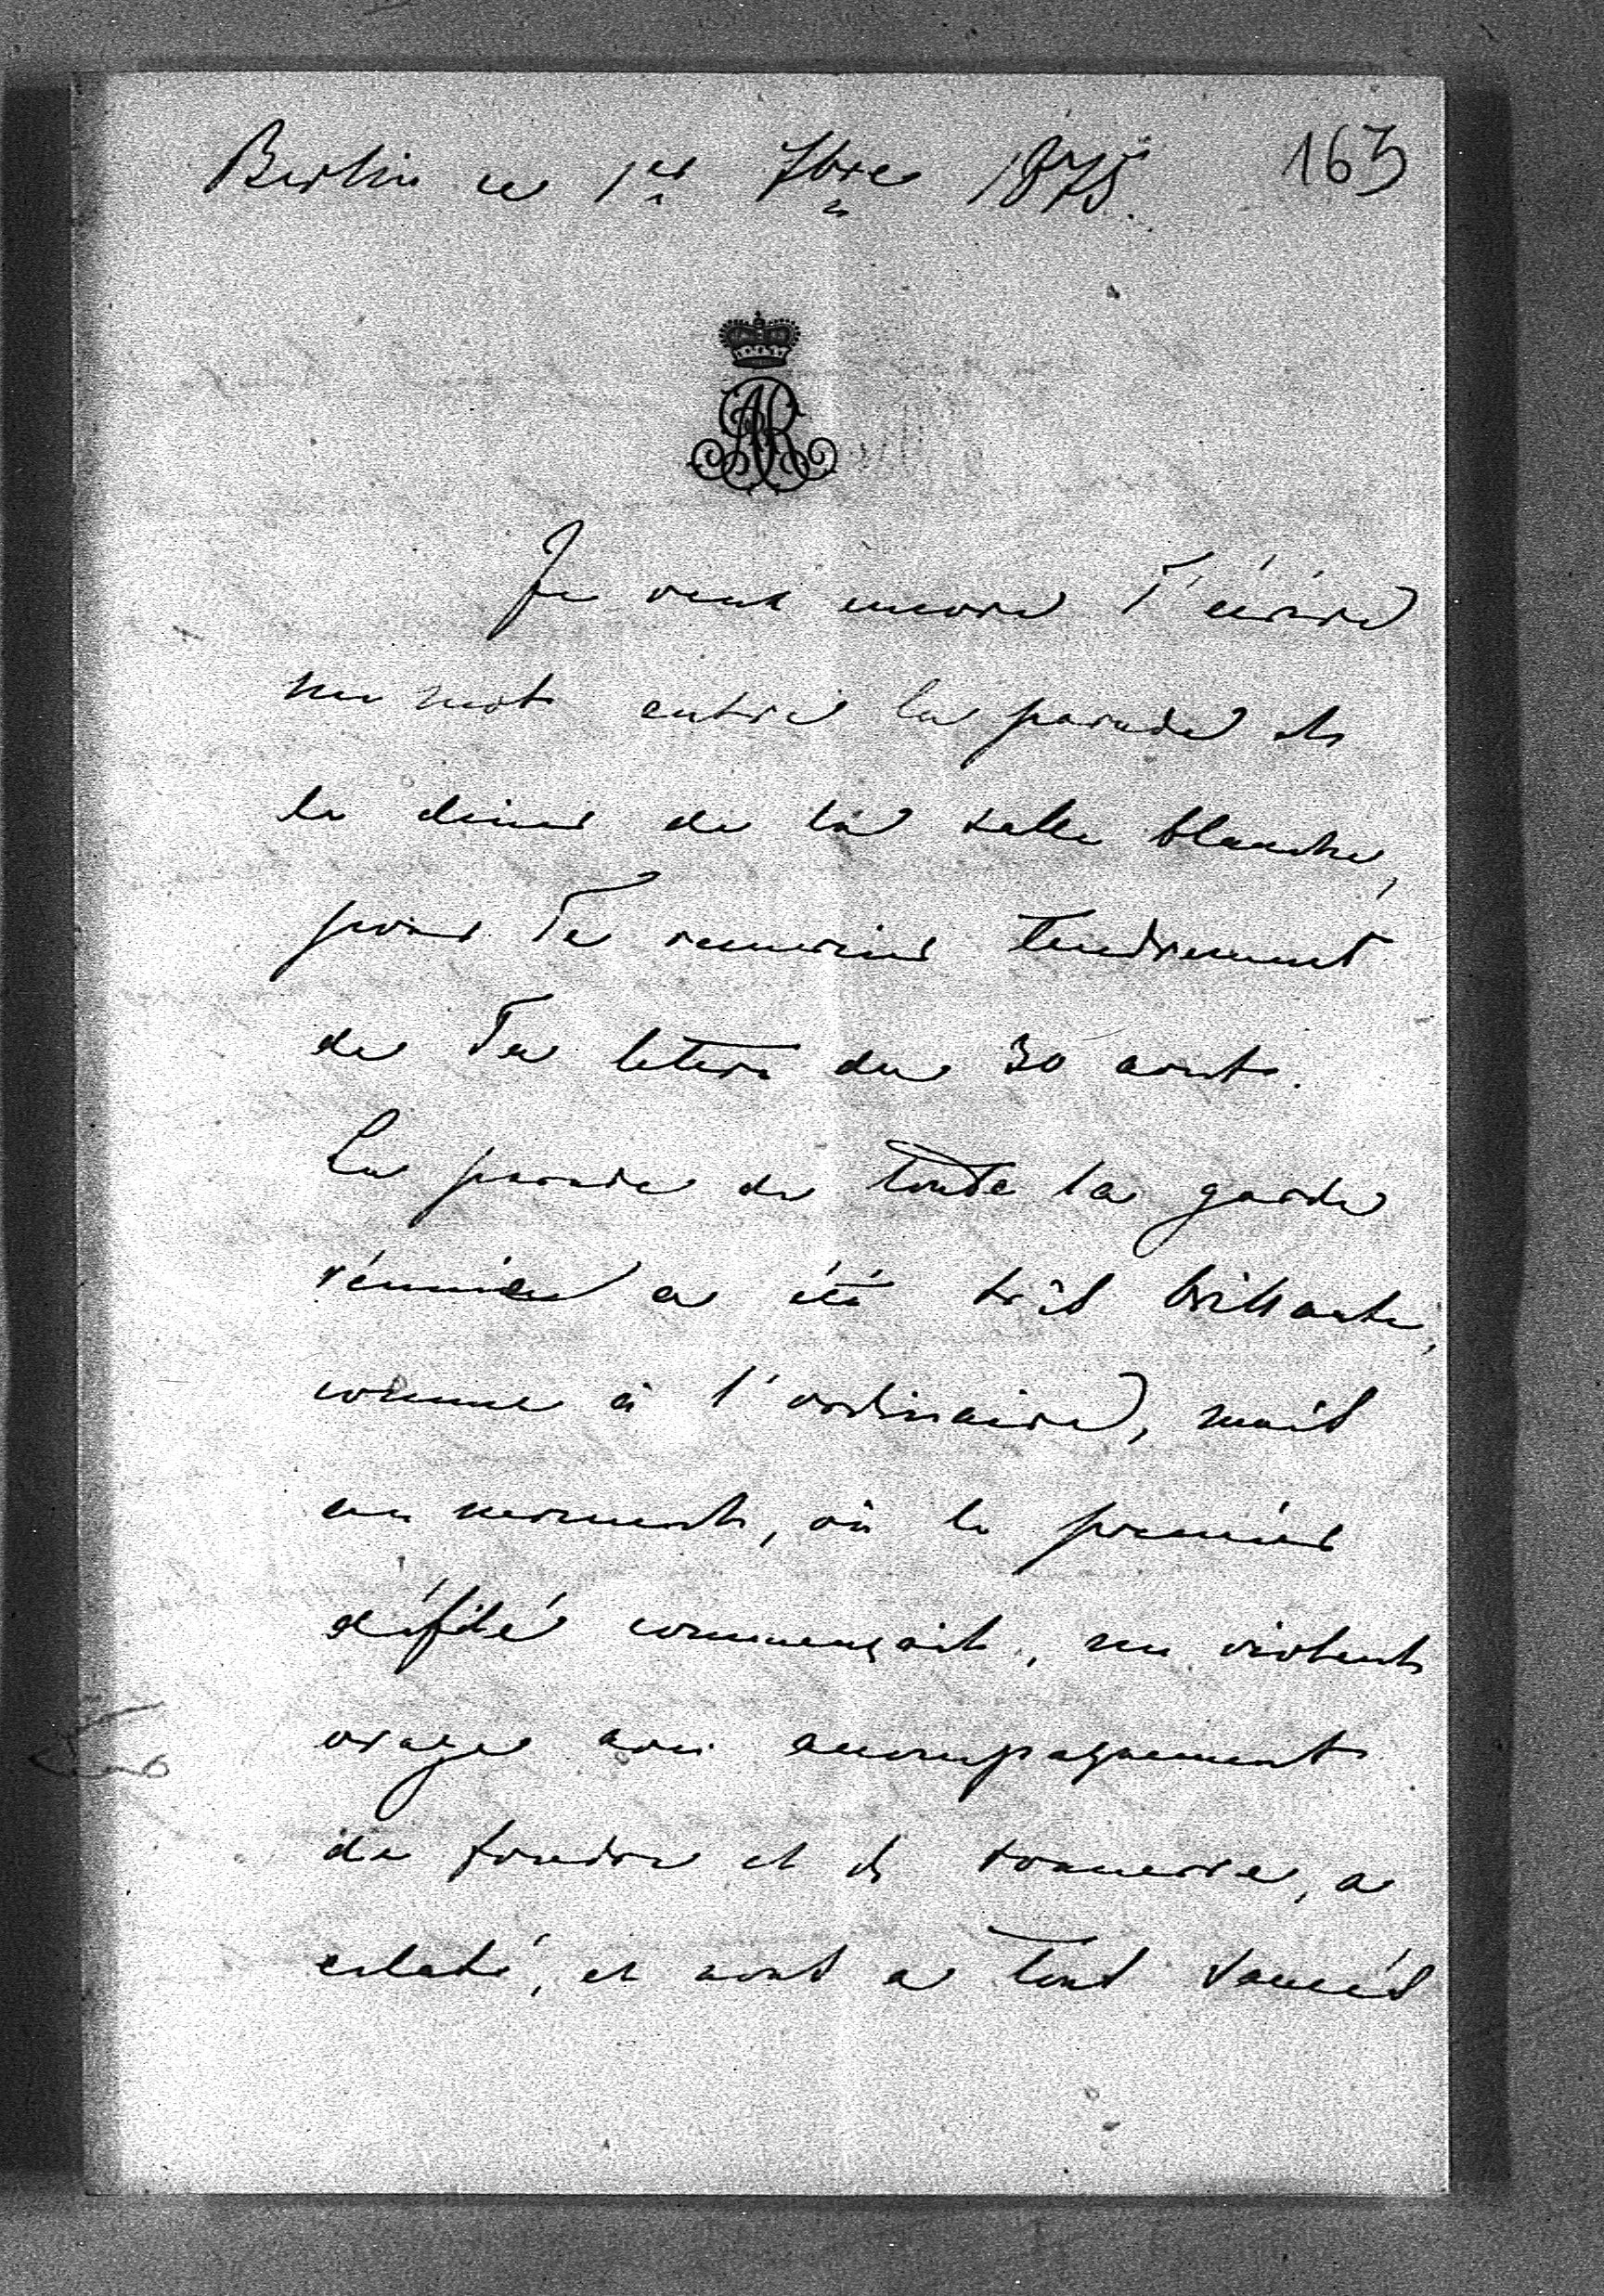 Berlin ce 1er 7bre 1875. 163
AR
Je veux encore T'écrire
un mot entre la parade et
le diner de la salle blanche,
pour Te remercier tendrement
de Ta lettre du 30 aout.
La parade de toute la garde
réunie a été très brillante,
comme à l'ordinaire, mais
au moment, où le premier
défilé commençait, un violent
orage avec accompagnement
de foudre et de tonnerre, a
eclaté, et nous a tous